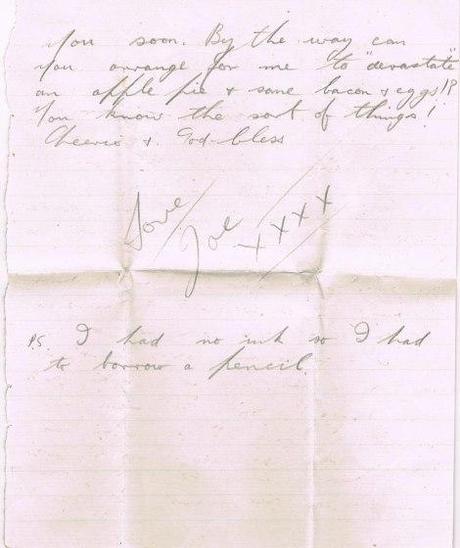 you soon. By the way "can
you arrange for me to "devastate"
an apple pie & some bacon & eggs!?
You know the sort of things!
Cheerio & God-bless
Love
Joe xxxx
P.S. I had no ink so I had
to borrow a pencil